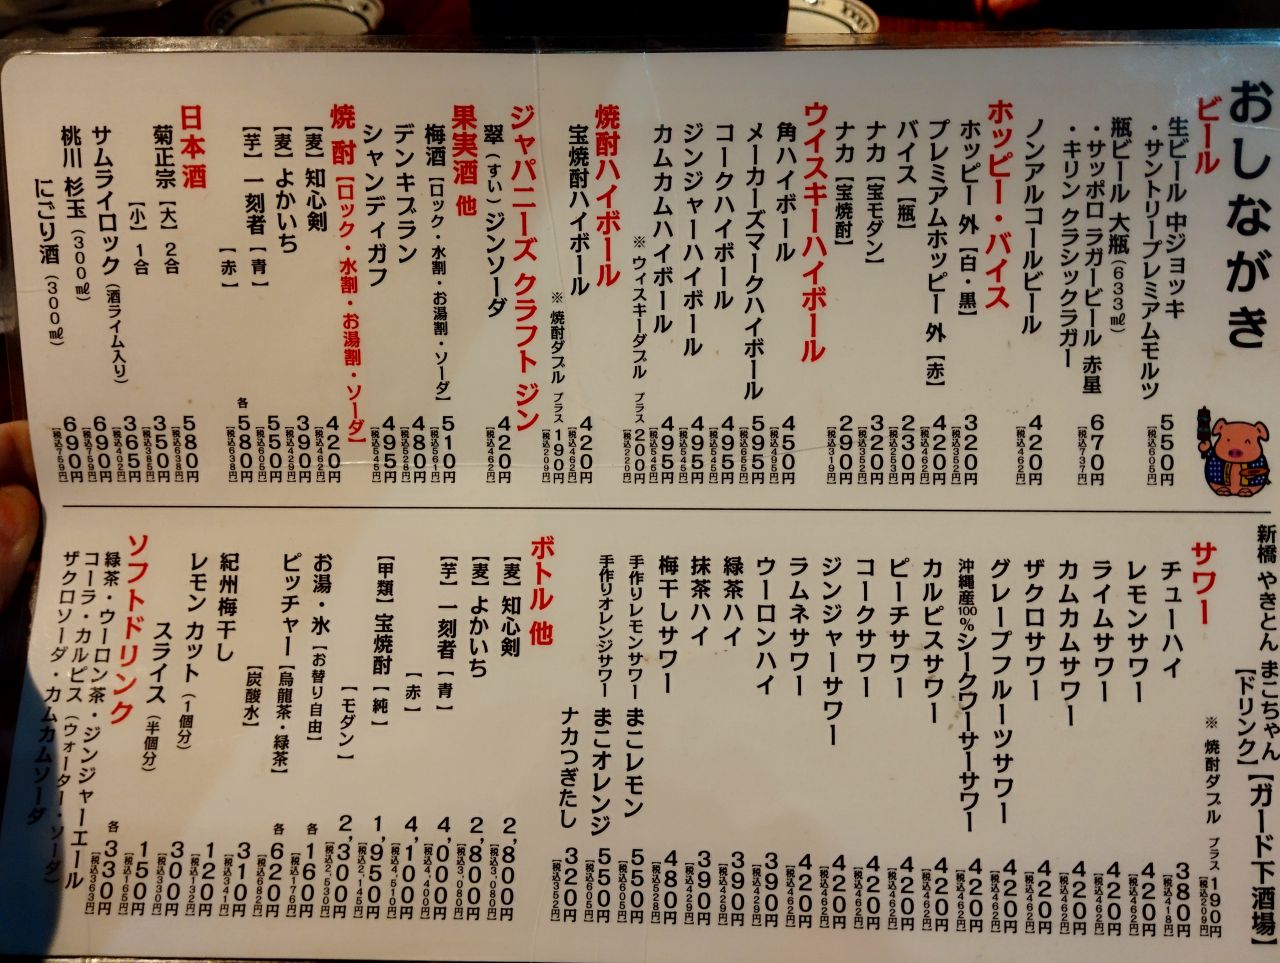 おしながき
ビール
生ビール 中ジョッキ 550円 [税込605円]
・サントリープレミアムモルツ
瓶ビール 大瓶(633㎖) 670円 [税込737円]
・サッポロ ラガービール 赤星
・キリン クラシックラガー
ノンアルコールビール 420円 [税込462円]
ホッピー・バイス
ホッピー 外 [白・黒] 320円 [税込352円]
プレミアムホッピー 外 [赤] 420円 [税込462円]
バイス [瓶] 230円 [税込253円]
ナカ [宝モダン] 320円 [税込352円]
ナカ [宝焼酎] 290円 [税込319円]
ウイスキーハイボール
角ハイボール 450円 [税込495円]
メーカーズマークハイボール 595円 [税込655円]
コークハイボール 495円 [税込545円]
ジンジャーハイボール 495円 [税込545円]
カムカムハイボール 495円 [税込545円]
※ ウィスキーダブル プラス 200円 [税込220円]
焼酎ハイボール
宝焼酎ハイボール 420円 [税込462円]
※ 焼酎ダブル プラス 190円 [税込209円]
ジャパニーズ クラフト ジン
翠(すい)ジンソーダ 420円 [税込462円]
果実酒 他
梅酒 [ロック・水割・お湯割・ソーダ] 510円 [税込561円]
デンキブラン 480円 [税込528円]
シャンディガフ 495円 [税込545円]
焼酎 [ロック・水割・お湯割・ソーダ]
[麦] 知心剣 420円 [税込462円]
[麦] よかいち 390円 [税込429円]
[芋] 一刻者 [青] 550円 [税込605円]
[赤] 各 580円 [税込638円]
日本酒
菊正宗 [大] 2合 580円 [税込638円]
[小] 1合 350円 [税込385円]
365円 [税込402円]
サムライロック(酒ライム入り) 690円 [税込759円]
桃川 杉玉(300㎖) 690円 [税込759円]
にごり酒(300㎖)
新橋 やきとん まこちゃん [ガード下酒場]
[ドリンク]
サワー ※ 焼酎ダブル プラス 190円 [税込209円]
チューハイ 380円 [税込418円]
レモンサワー 420円 [税込462円]
ライムサワー 420円 [税込462円]
カムカムサワー 420円 [税込462円]
ザクロサワー 420円 [税込462円]
グレープフルーツサワー 420円 [税込462円]
沖縄産100%シークワーサーサワー 420円 [税込462円]
カルピスサワー 420円 [税込462円]
ピーチサワー 420円 [税込462円]
コークサワー 420円 [税込462円]
ジンジャーサワー 420円 [税込462円]
ラムネサワー 420円 [税込462円]
ウーロンハイ 390円 [税込429円]
緑茶ハイ 390円 [税込429円]
抹茶ハイ 390円 [税込429円]
梅干しサワー 480円 [税込528円]
手作りレモンサワー まこレモン 550円 [税込605円]
手作りオレンジサワー まこオレンジ 550円 [税込605円]
ナカつぎたし 320円 [税込352円]
ボトル 他
[麦] 知心剣 2,800円 [税込3,080円]
[麦] よかいち 2,800円 [税込3,080円]
[芋] 一刻者 [青] 4,000円 [税込4,400円]
[赤] 4,100円 [税込4,510円]
[甲類] 宝焼酎 [純] 1,950円 [税込2,145円]
[モダン] 2,300円 [税込2,530円]
お湯・氷 [お替り自由] 各 160円 [税込176円]
ピッチャー [烏龍茶・緑茶] 各 620円 [税込682円]
[炭酸水] 310円 [税込341円]
紀州梅干し 120円 [税込132円]
レモン カット (1個分) 300円 [税込330円]
スライス (半個分) 150円 [税込165円]
ソフトドリンク 各 330円 [税込363円]
緑茶・ウーロン茶・ジンジャーエール
コーラ・カルピス(ウォーター・ソーダ)
ザクロソーダ・カムカムソーダ